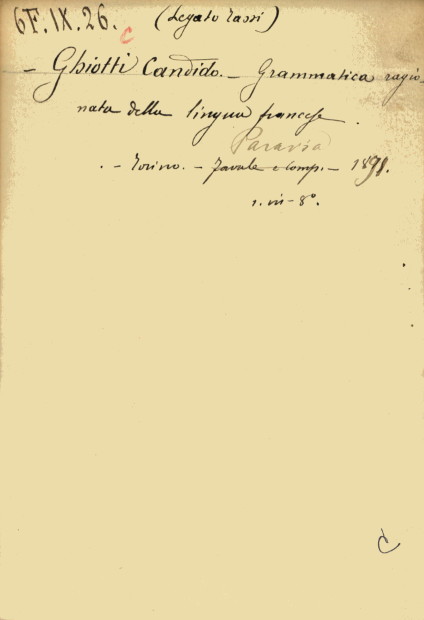 6F.IX.26. (Legato Tassi)
C
- Ghiotti Candido. - Grammatica ragio-
nata della lingua francese.
Paravia
. - Torino. - Favale e comp. - 1891.
1. in - 8°.
C